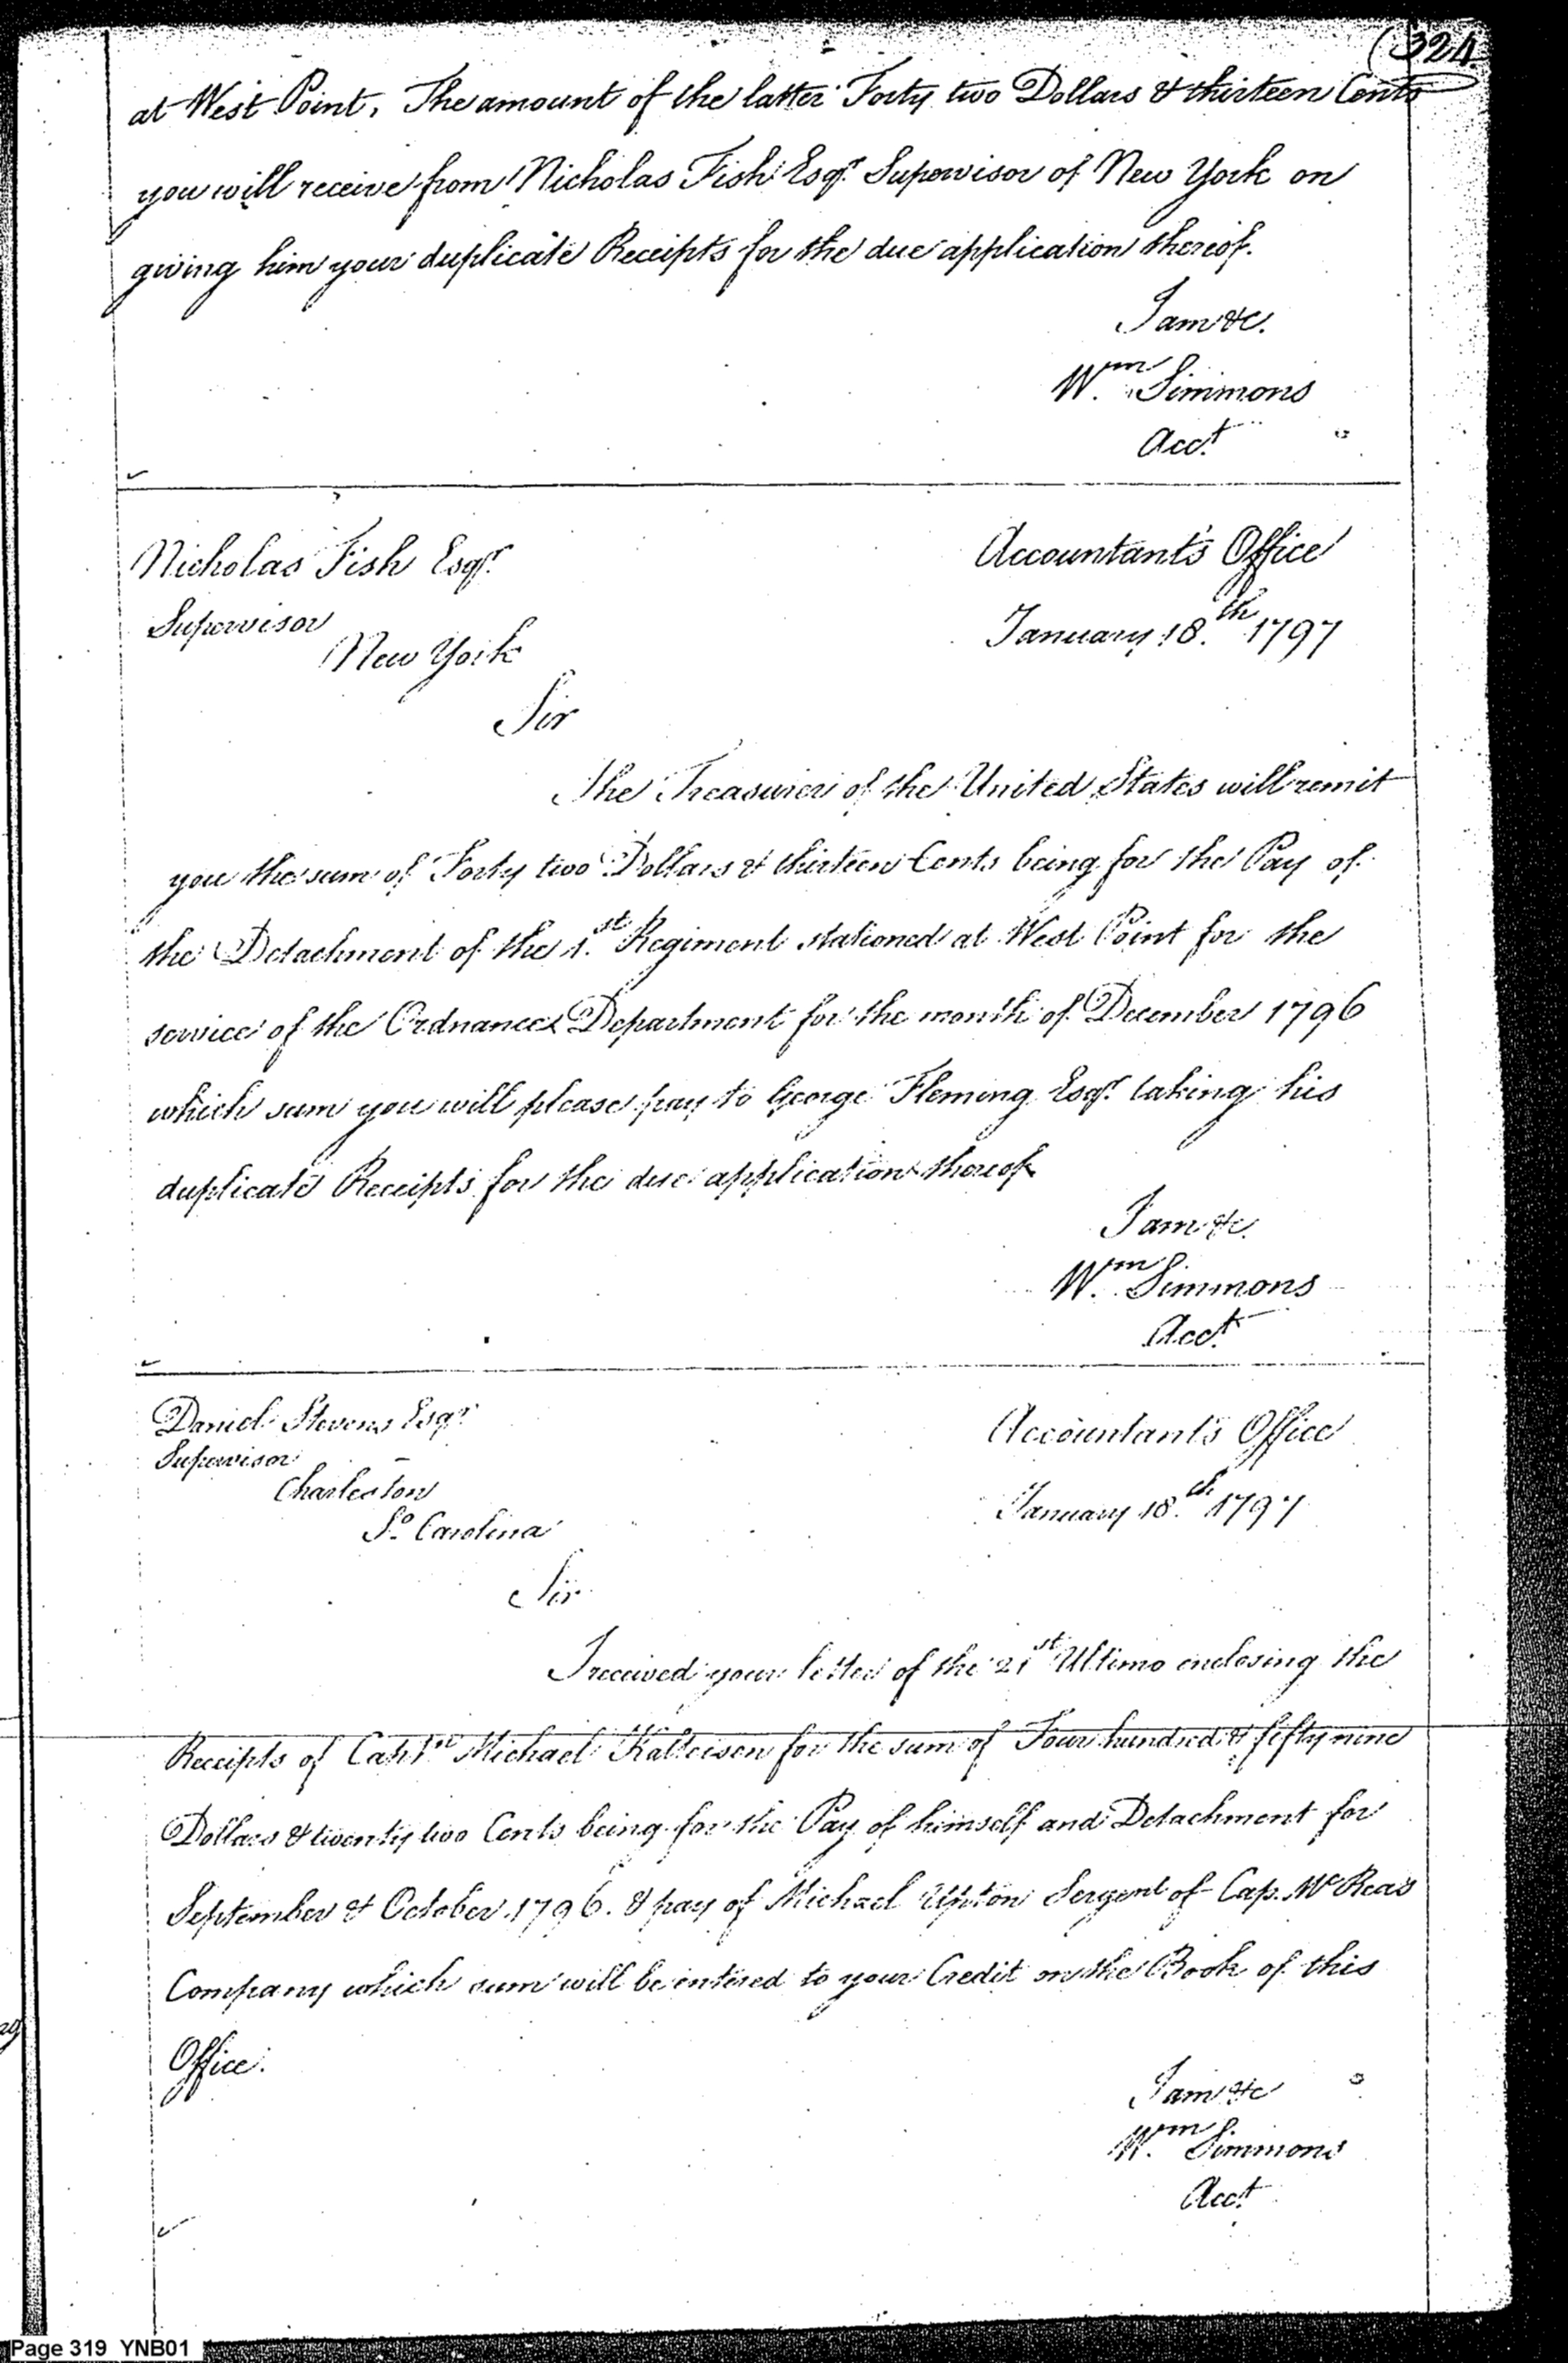 (324
at West Point. The amount of the latter Forty two Dollars & thirteen Cents
you will receive from Nicholas Fish Esqr. Supervisor of New York on
giving him your duplicate Receipts for the due application thereof.
I am &c.
Wm. Simmons
Acct.
Nicholas Fish Esqr.
Supervisor
New York
Accountant's Office
January 18.th 1797
Sir
The Treasurer of the United States will remit
you the sum of Forty two Dollars & thirteen Cents being for the Pay of
the Detachment of the 1.st Regiment stationed at West Point for the
service of the Ordnance Department for the month of December 1796
which sum you will please pay to George Fleming Esqr. taking his
duplicate Receipts for the due application thereof
I am &c.
Wm. Simmons
Acct.
Daniel Stevens Esqr.
Supervisor
Charleston
So. Carolina
Accountant's Office
January 18.th 1797
Sir
I received your letter of the 21st Ultimo enclosing the
Receipts of Michael Kalteisen for the sum of Four hundred & fifty nine
Dollars & twenty two Cents being for the Pay of himself and Detachment for
September & October 1796. & pay of Michael Upton Sergent of Cap. McReas
Company which sum will be entered to your Credit on the Book of this
Office.
I am &c
Wm. Simmons
Acct.
Page 319 YNB01